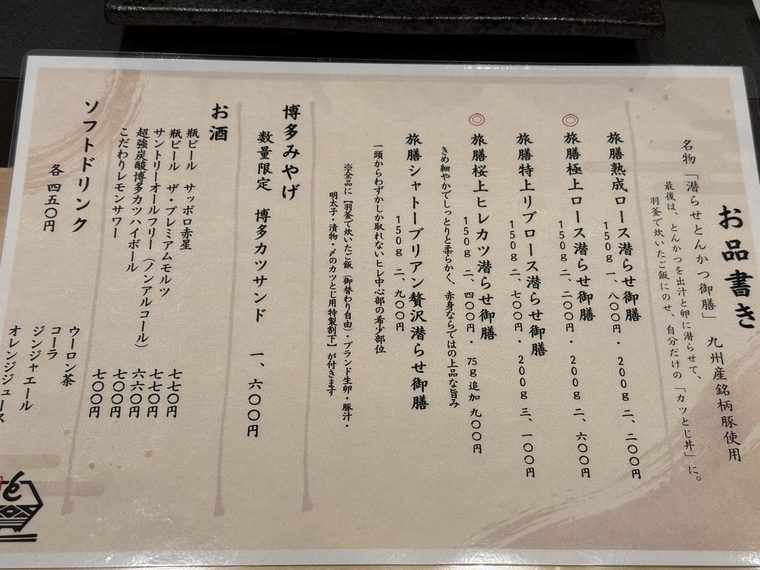 お品書き
名物「潜らせとんかつ御膳」 九州産銘柄豚使用
最後は、とんかつを出汁と卵に潜らせて、
羽釜で炊いたご飯にのせ、自分だけの「カツとじ丼」に。
旅膳熟成ロース潜らせ御膳
150g 一、八〇〇円・200g 二、二〇〇円
◎ 旅膳極上ロース潜らせ御膳
150g 二、二〇〇円・200g 二、六〇〇円
旅膳特上リブロース潜らせ御膳
150g 二、七〇〇円・200g 三、一〇〇円
◎ 旅膳桜上ヒレカツ潜らせ御膳
150g 二、四〇〇円・75g追加 九〇〇円
きめ細やかでしっとりと柔らかく、赤身ならではの上品な旨み
旅膳シャトーブリアン贅沢潜らせ御膳
150g 二、九〇〇円
一頭からわずかしか取れないヒレ中心部の希少部位
※全品に【羽釜で炊いたご飯(御替わり自由)・ブランド生卵・豚汁・
明太子・漬物・〆のカツとじ用特製割下】が付きます
博多みやげ
数量限定 博多カツサンド 一、六〇〇円
お酒
瓶ビール サッポロ赤星 七七〇円
瓶ビール ザ・プレミアムモルツ 七七〇円
サントリーオールフリー(ノンアルコール) 六六〇円
超強炭酸博多カツハイボール 七〇〇円
こだわりレモンサワー 七〇〇円
ソフトドリンク
各 四五〇円
ウーロン茶
コーラ
ジンジャエール
オレンジジュース